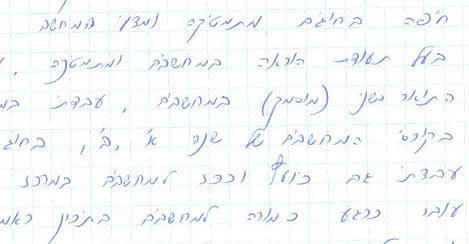 חיפה בחוגים מתמטיקה ומדעי המחשב
בעל תעודת הוראה במחשבים ומתמטיקה ,
התואר השני (מוסמך) במחשבים , עבדתי במ
בקורסי המחשבים של שנה א', ב', בחוג
עבדתי גם כיועץ וככז למחשבים במרכז
עובד כרגע כמורה למחשבים בתיכון ראמ